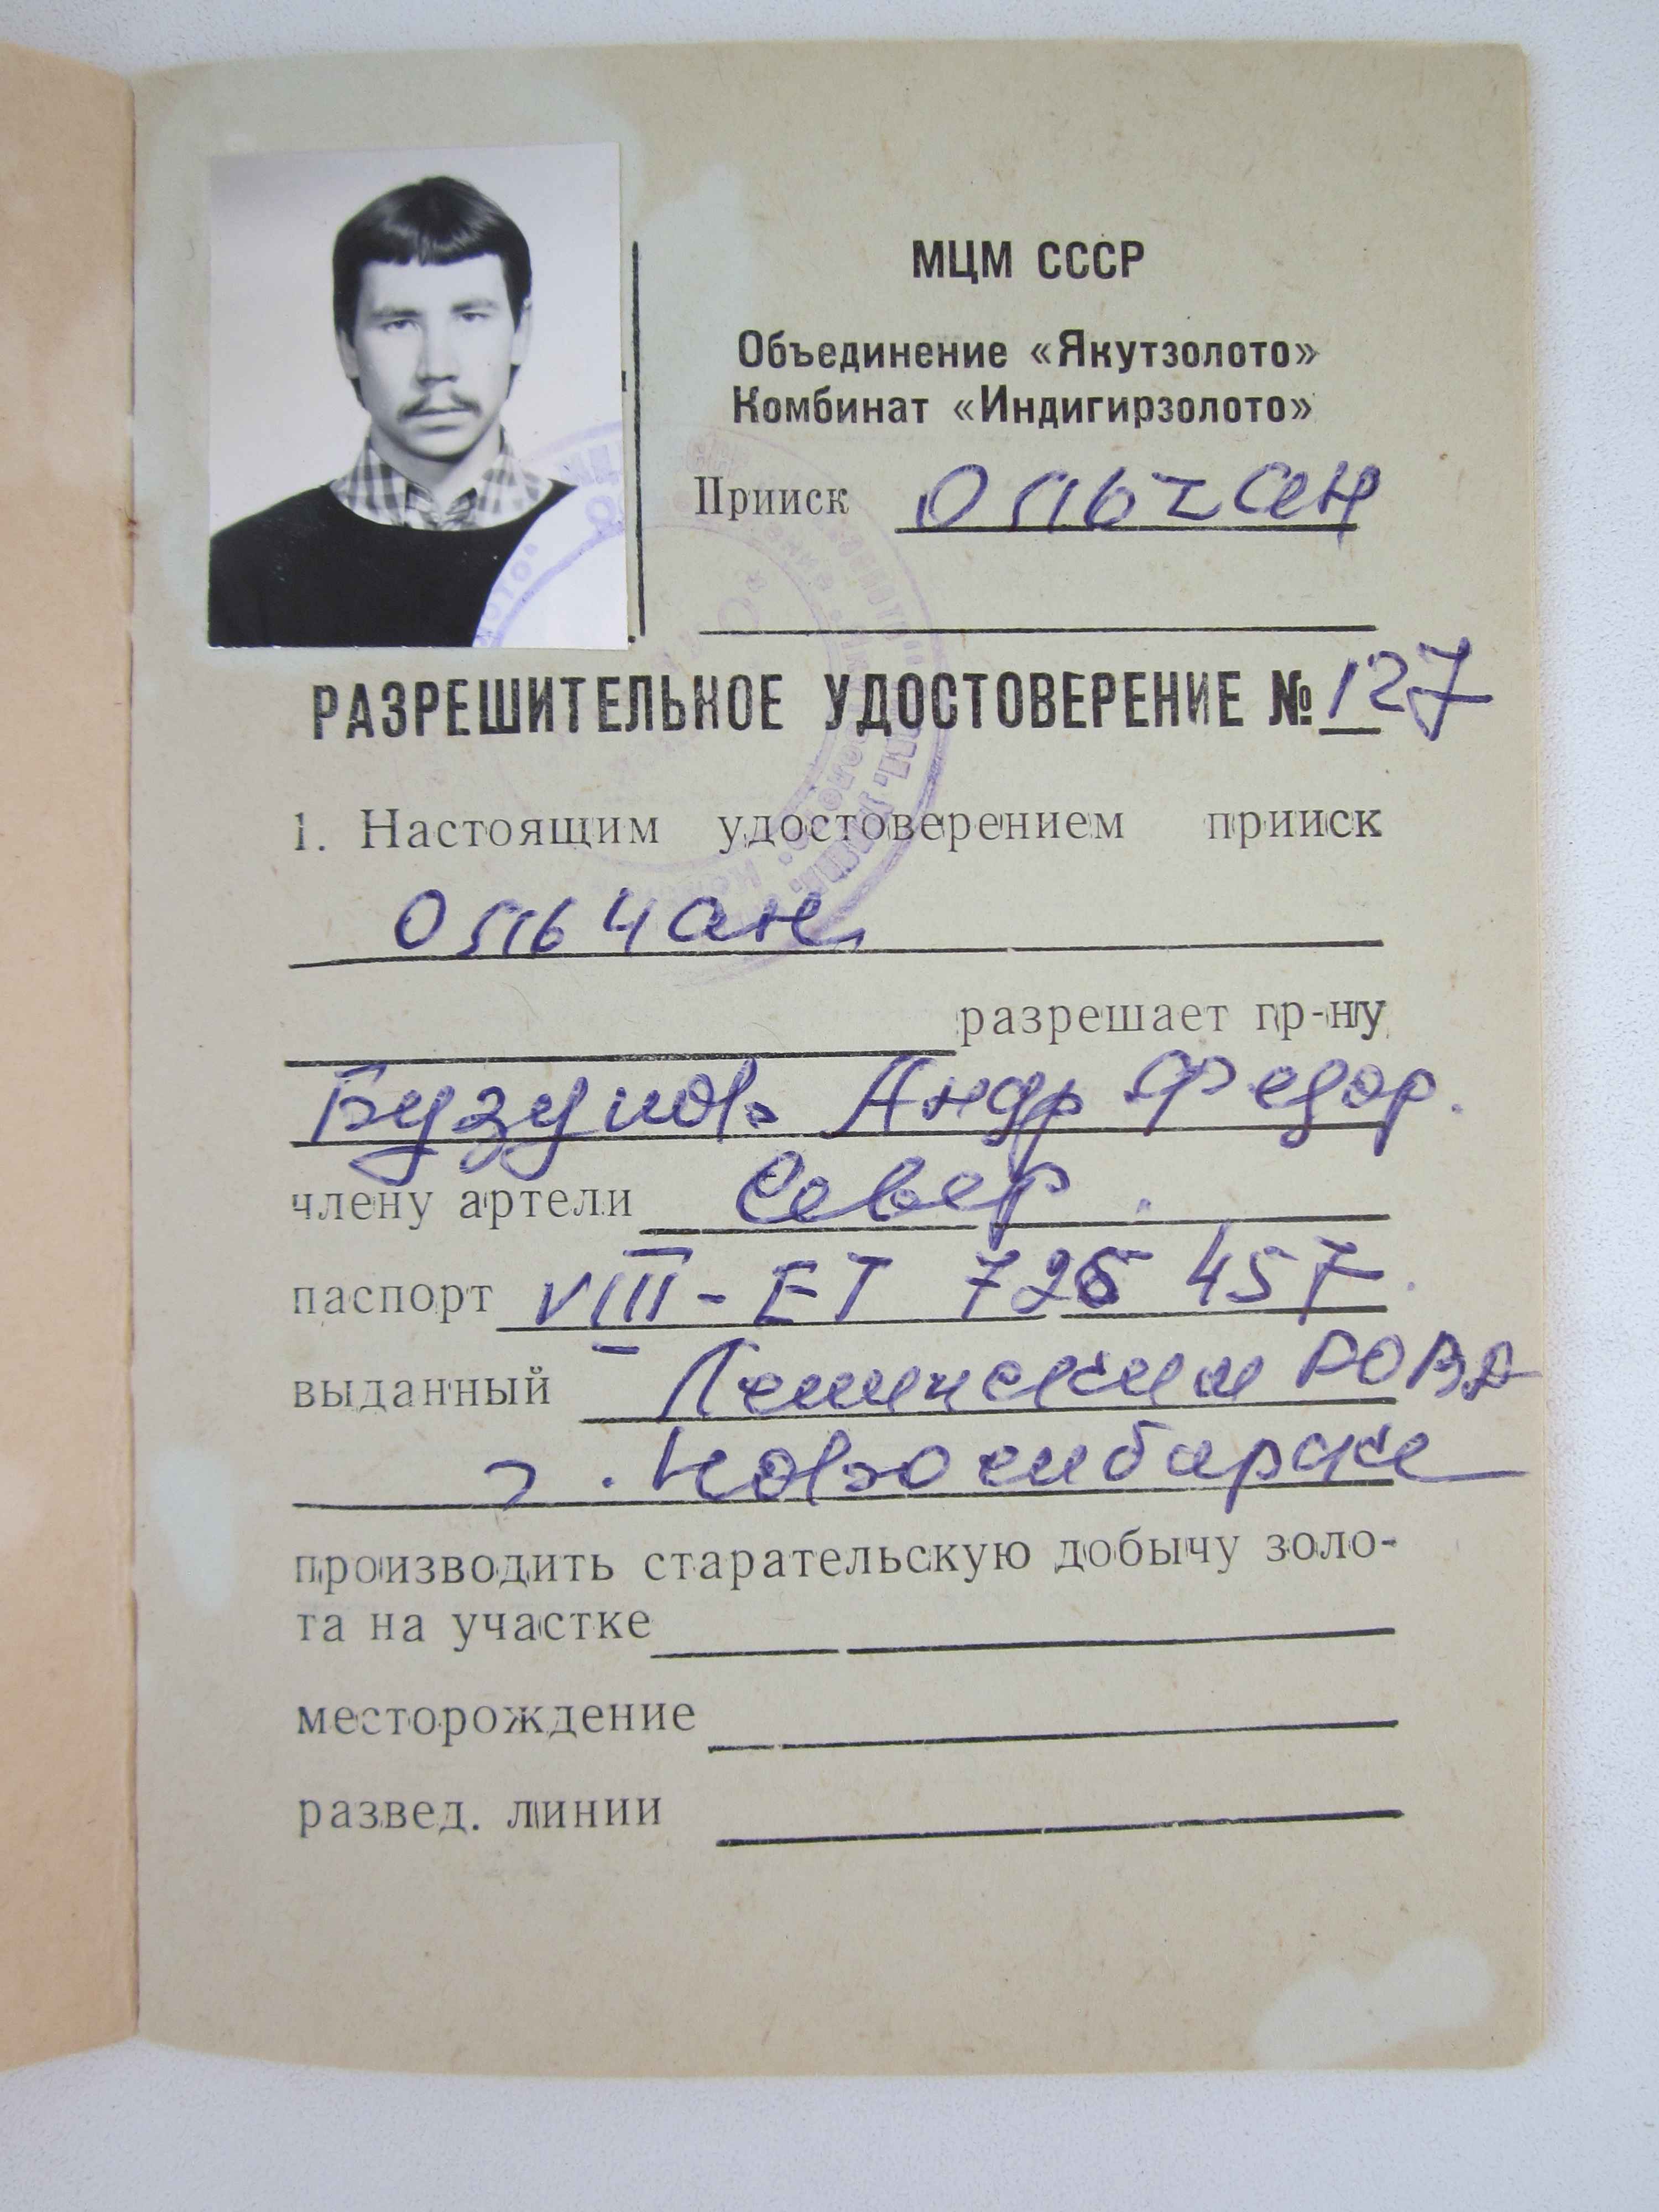 МЦМ СССР
Объединение «Якутзолото»
Комбинат «Индигирзолото»
Прииск Ольчан
РАЗРЕШИТЕЛЬНОЕ УДОСТОВЕРЕНИЕ № 127
1. Настоящим удостоверением прииск
Ольчан
разрешает гр-ну
Бузунов Андр Федор.
члену артели Север.
паспорт VIII-ЕТ 726 457
выданный Ленинским РОВД
г. Новосибирске
производить старательскую добычу золо-
та на участке
месторождение
развед. линии